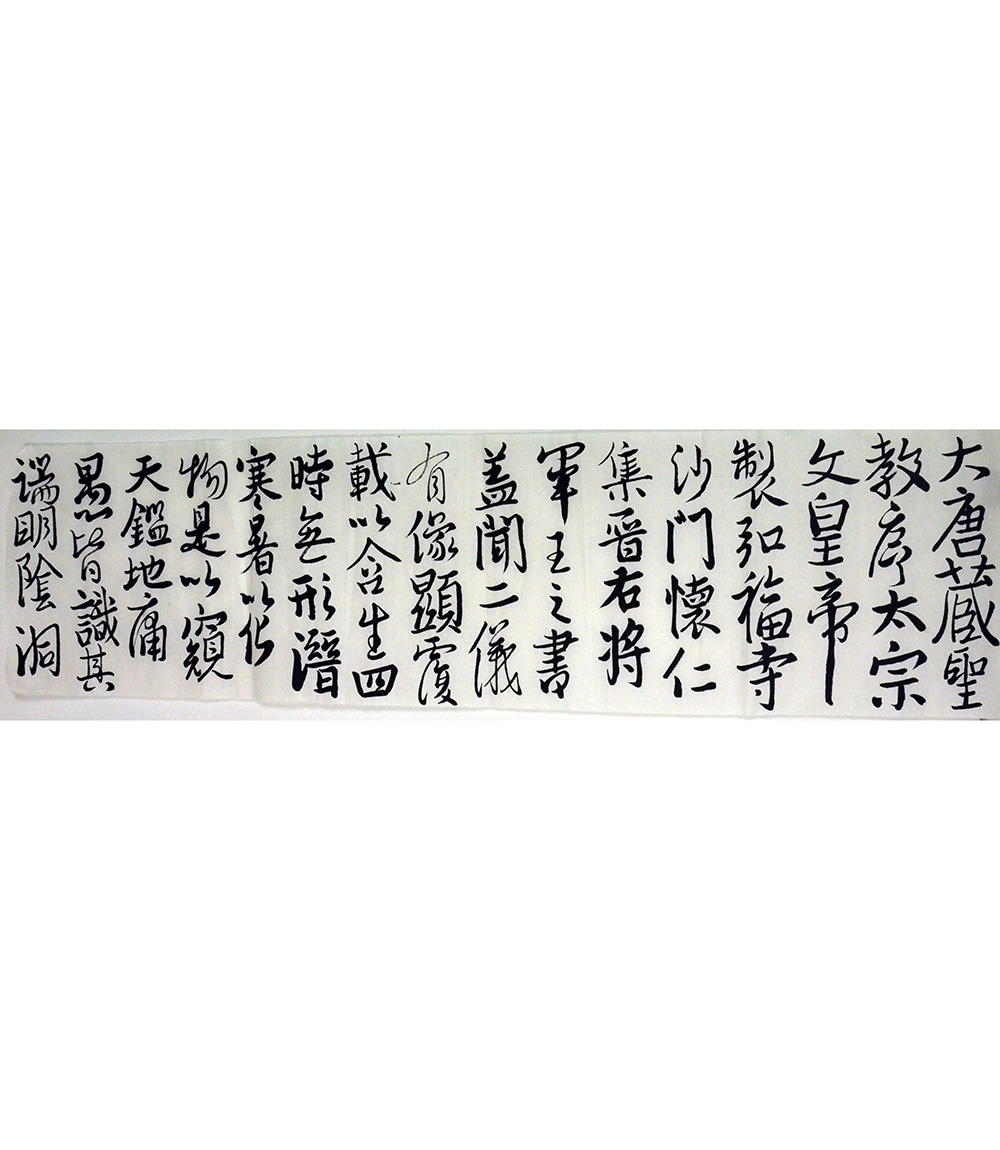 大唐三藏聖
教序太宗
文皇帝
製弘福寺
沙門懷仁
集晉右將
軍王之書
蓋聞二儀
有像顯覆
載以含生四
時無形潛
寒暑以化
物是以窺
天鑑地庸
愚皆識其
端明陰洞